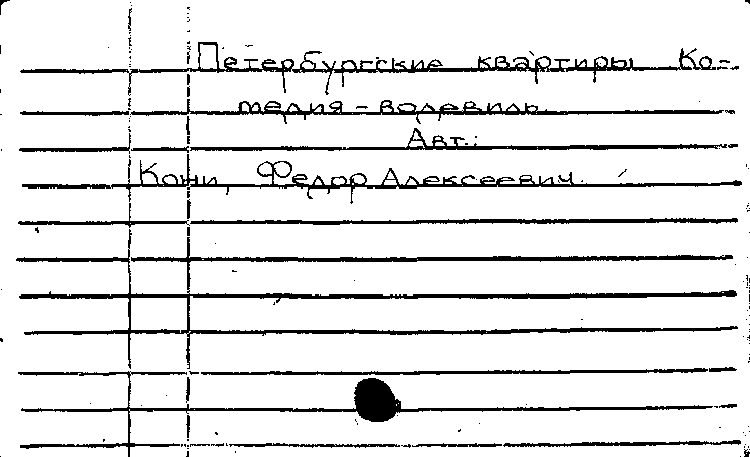 Петербургские квартиры Ко-
медия-водевиль.
Авт.:
Кони, Федор Алексеевич.